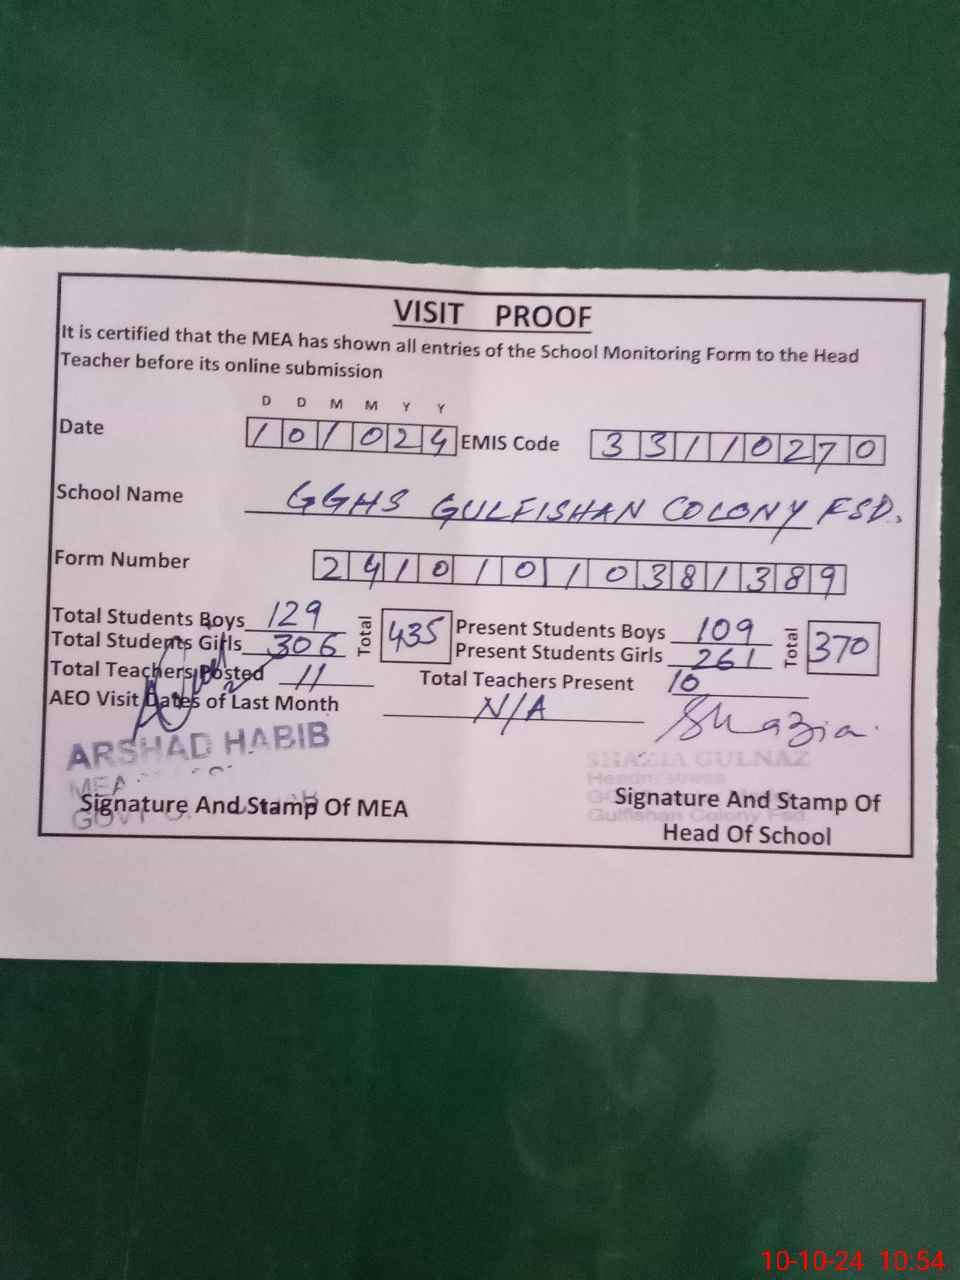 VISIT PROOF
It is certified that the MEA has shown all entries of the School Monitoring Form to the Head
Teacher before its online submission
D D M M Y Y
Date 1 0 1 0 2 4 EMIS Code 3 3 1 1 0 2 7 0
School Name GGHS GULFISHAN COLONY FSD.
Form Number 2 4 1 0 1 0 1 0 3 8 1 3 8 9
Total Students Boys 129 Total 435 Present Students Boys 109 Total 370
Total Students Girls 306 Present Students Girls 261
Total Teachers Posted 11 Total Teachers Present 10
AEO Visit Dates of Last Month N/A Shazia
ARSHAD HABIB SHAZIA GULNAZ
MEA Headmistress
Signature And Stamp Of MEA Signature And Stamp Of
GOVT Gulfishan Colony Fsd.
Head Of School
10-10-24 10:54